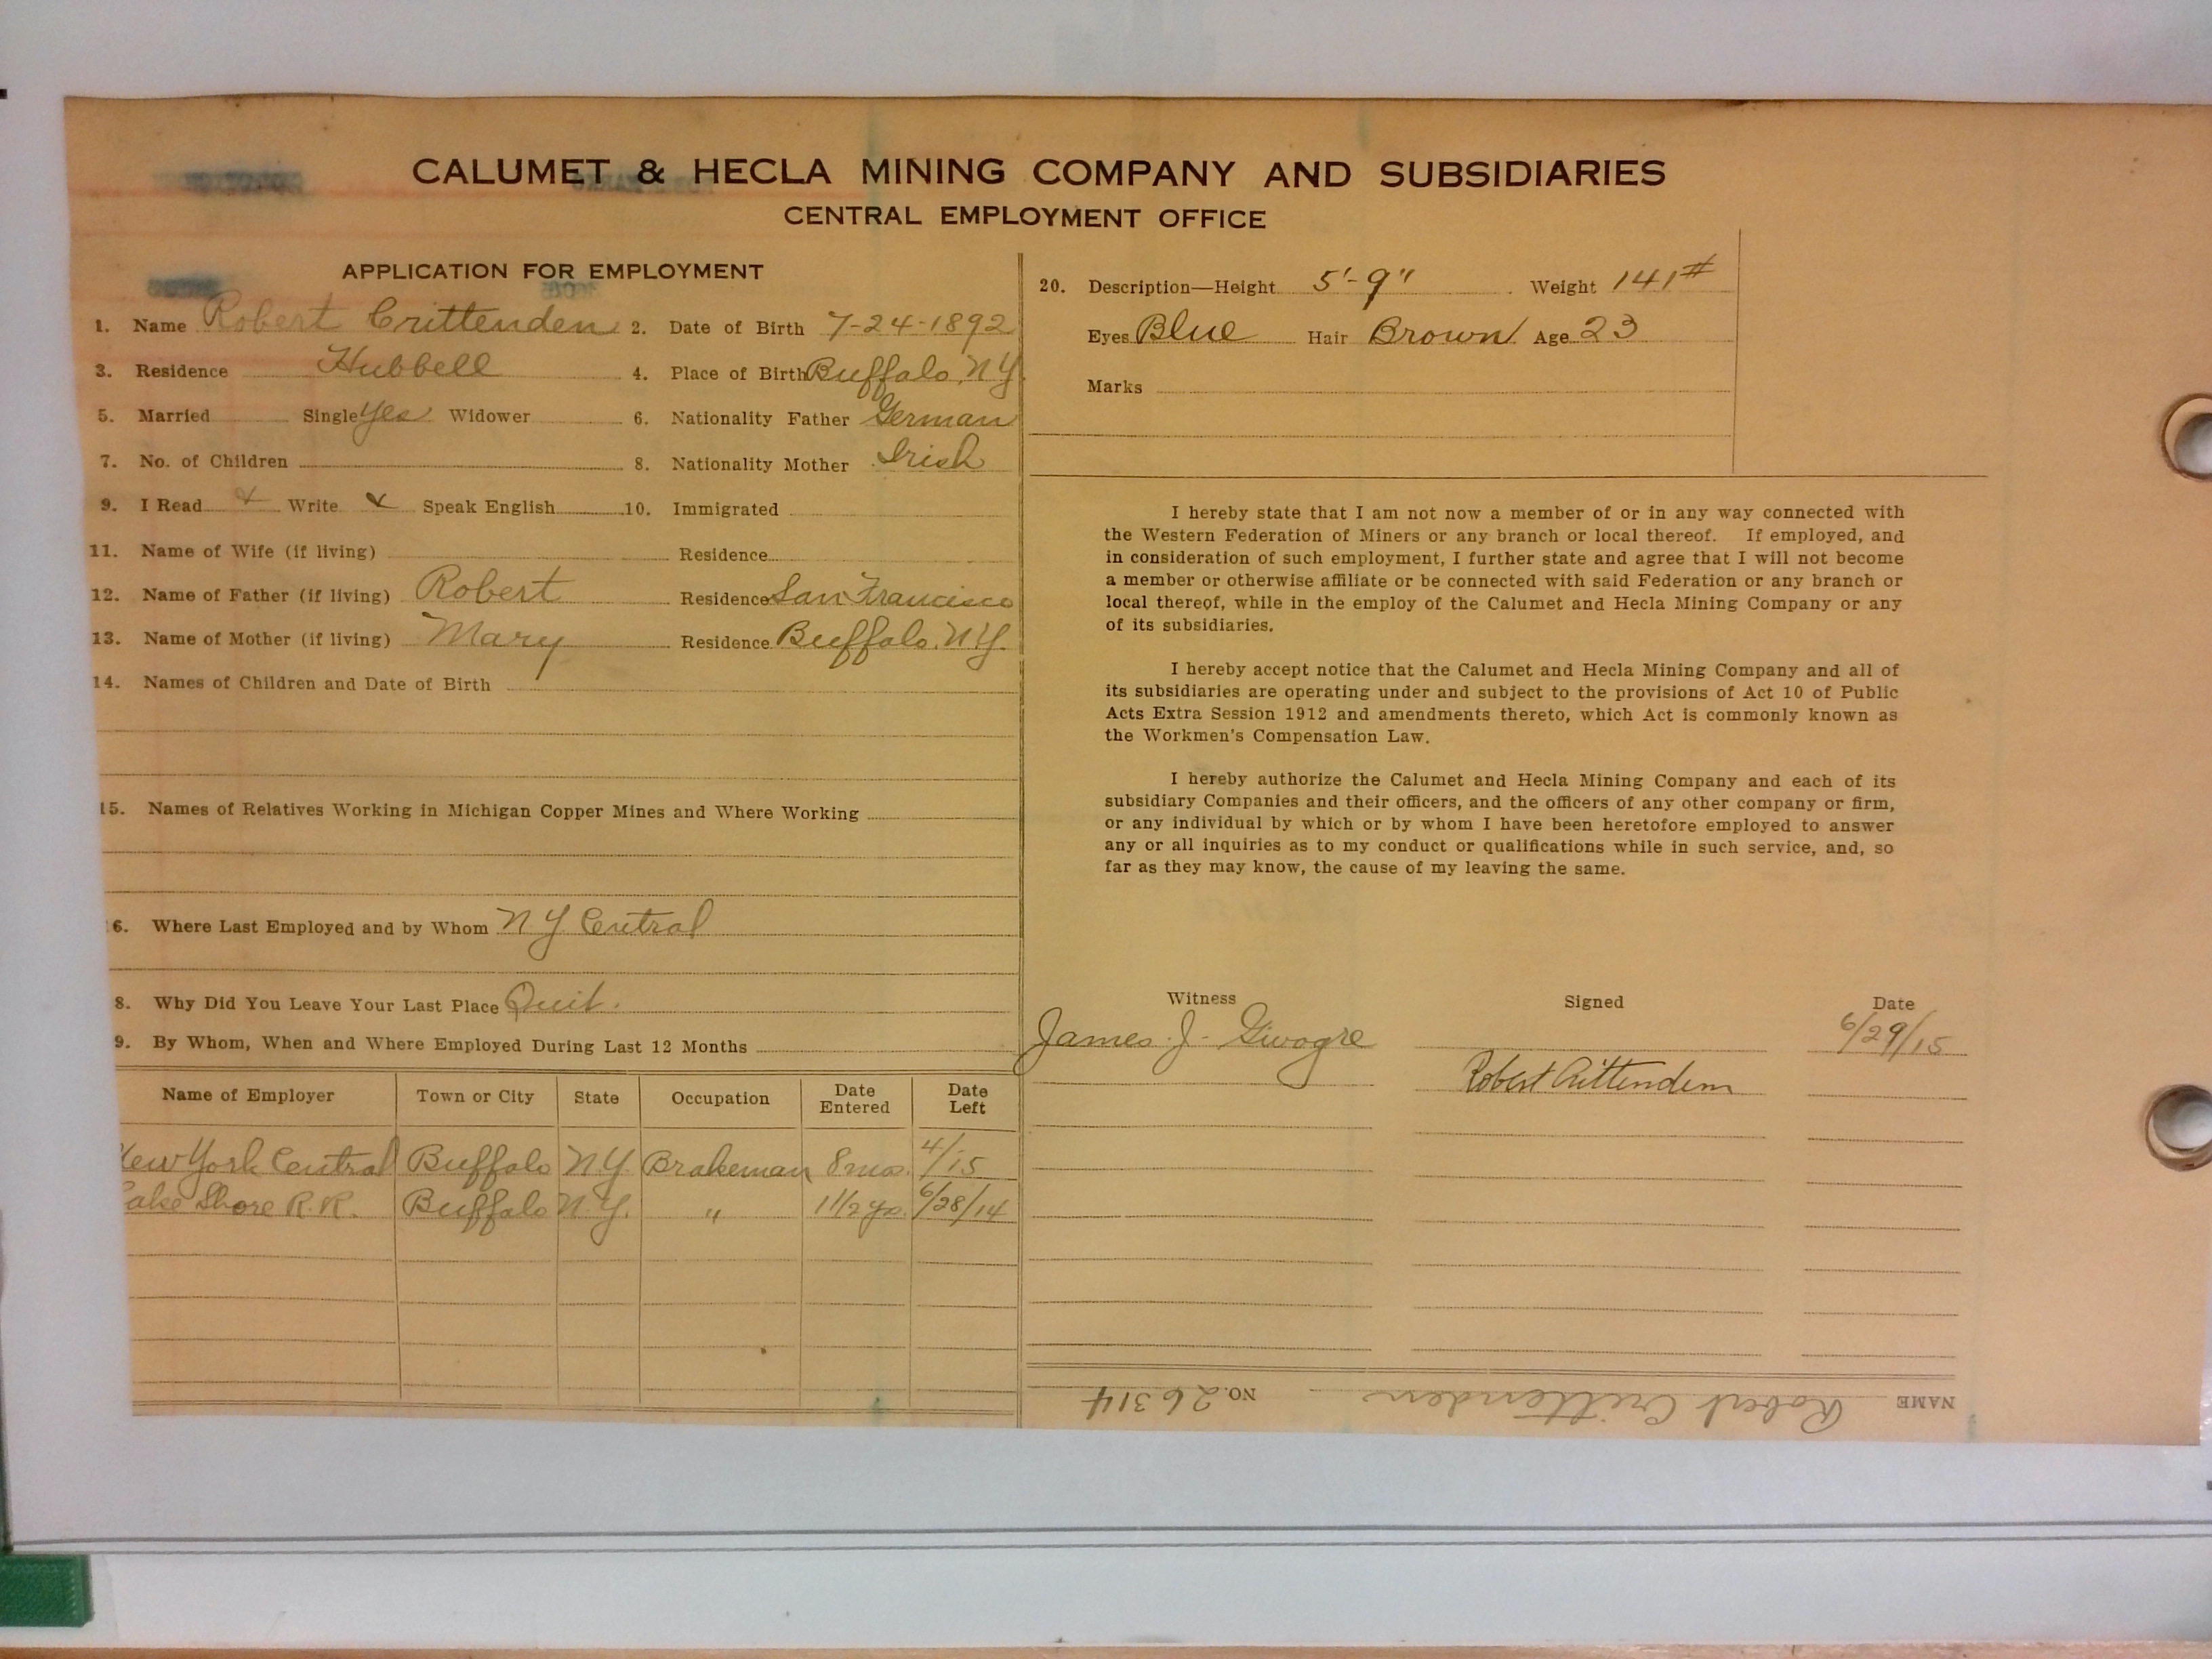 CALUMET & HECLA MINING COMPANY AND SUBSIDIARIES
CENTRAL EMPLOYMENT OFFICE
APPLICATION FOR EMPLOYMENT
1. Name Robert Crittenden 2. Date of Birth 7-24-1892
3. Residence Hubbell 4. Place of Birth Buffalo, N.Y.
5. Married Single Yes Widower 6. Nationality Father German
7. No. of Children 8. Nationality Mother Irish
9. I Read Write Speak English 10. Immigrated
11. Name of Wife (if living) Residence
12. Name of Father (if living) Robert Residence San Francisco
13. Name of Mother (if living) Mary Residence Buffalo. N.Y.
14. Names of Children and Date of Birth
15. Names of Relatives Working in Michigan Copper Mines and Where Working
6. Where Last Employed and by Whom N Y Central
8. Why Did You Leave Your Last Place Quit.
9. By Whom, When and Where Employed During Last 12 Months
Name of Employer Town or City State Occupation Date Entered Date Left
New York Central Buffalo N.Y. Brakeman 8 mos. 4/15
Lake Shore R.R. Buffalo N.Y. " 1 1/2 yrs. 6/28/14
20. Description—Height 5'-9" Weight 141#
Eyes Blue Hair Brown Age 23
Marks
I hereby state that I am not now a member of or in any way connected with
the Western Federation of Miners or any branch or local thereof. If employed, and
in consideration of such employment, I further state and agree that I will not become
a member or otherwise affiliate or be connected with said Federation or any branch or
local thereof, while in the employ of the Calumet and Hecla Mining Company or any
of its subsidiaries.
I hereby accept notice that the Calumet and Hecla Mining Company and all of
its subsidiaries are operating under and subject to the provisions of Act 10 of Public
Acts Extra Session 1912 and amendments thereto, which Act is commonly known as
the Workmen's Compensation Law.
I hereby authorize the Calumet and Hecla Mining Company and each of its
subsidiary Companies and their officers, and the officers of any other company or firm,
or any individual by which or by whom I have been heretofore employed to answer
any or all inquiries as to my conduct or qualifications while in such service, and, so
far as they may know, the cause of my leaving the same.
Witness Signed Date
James J. 6/29/15
Robert Crittenden
NAME Robert Crittenden NO. 26314